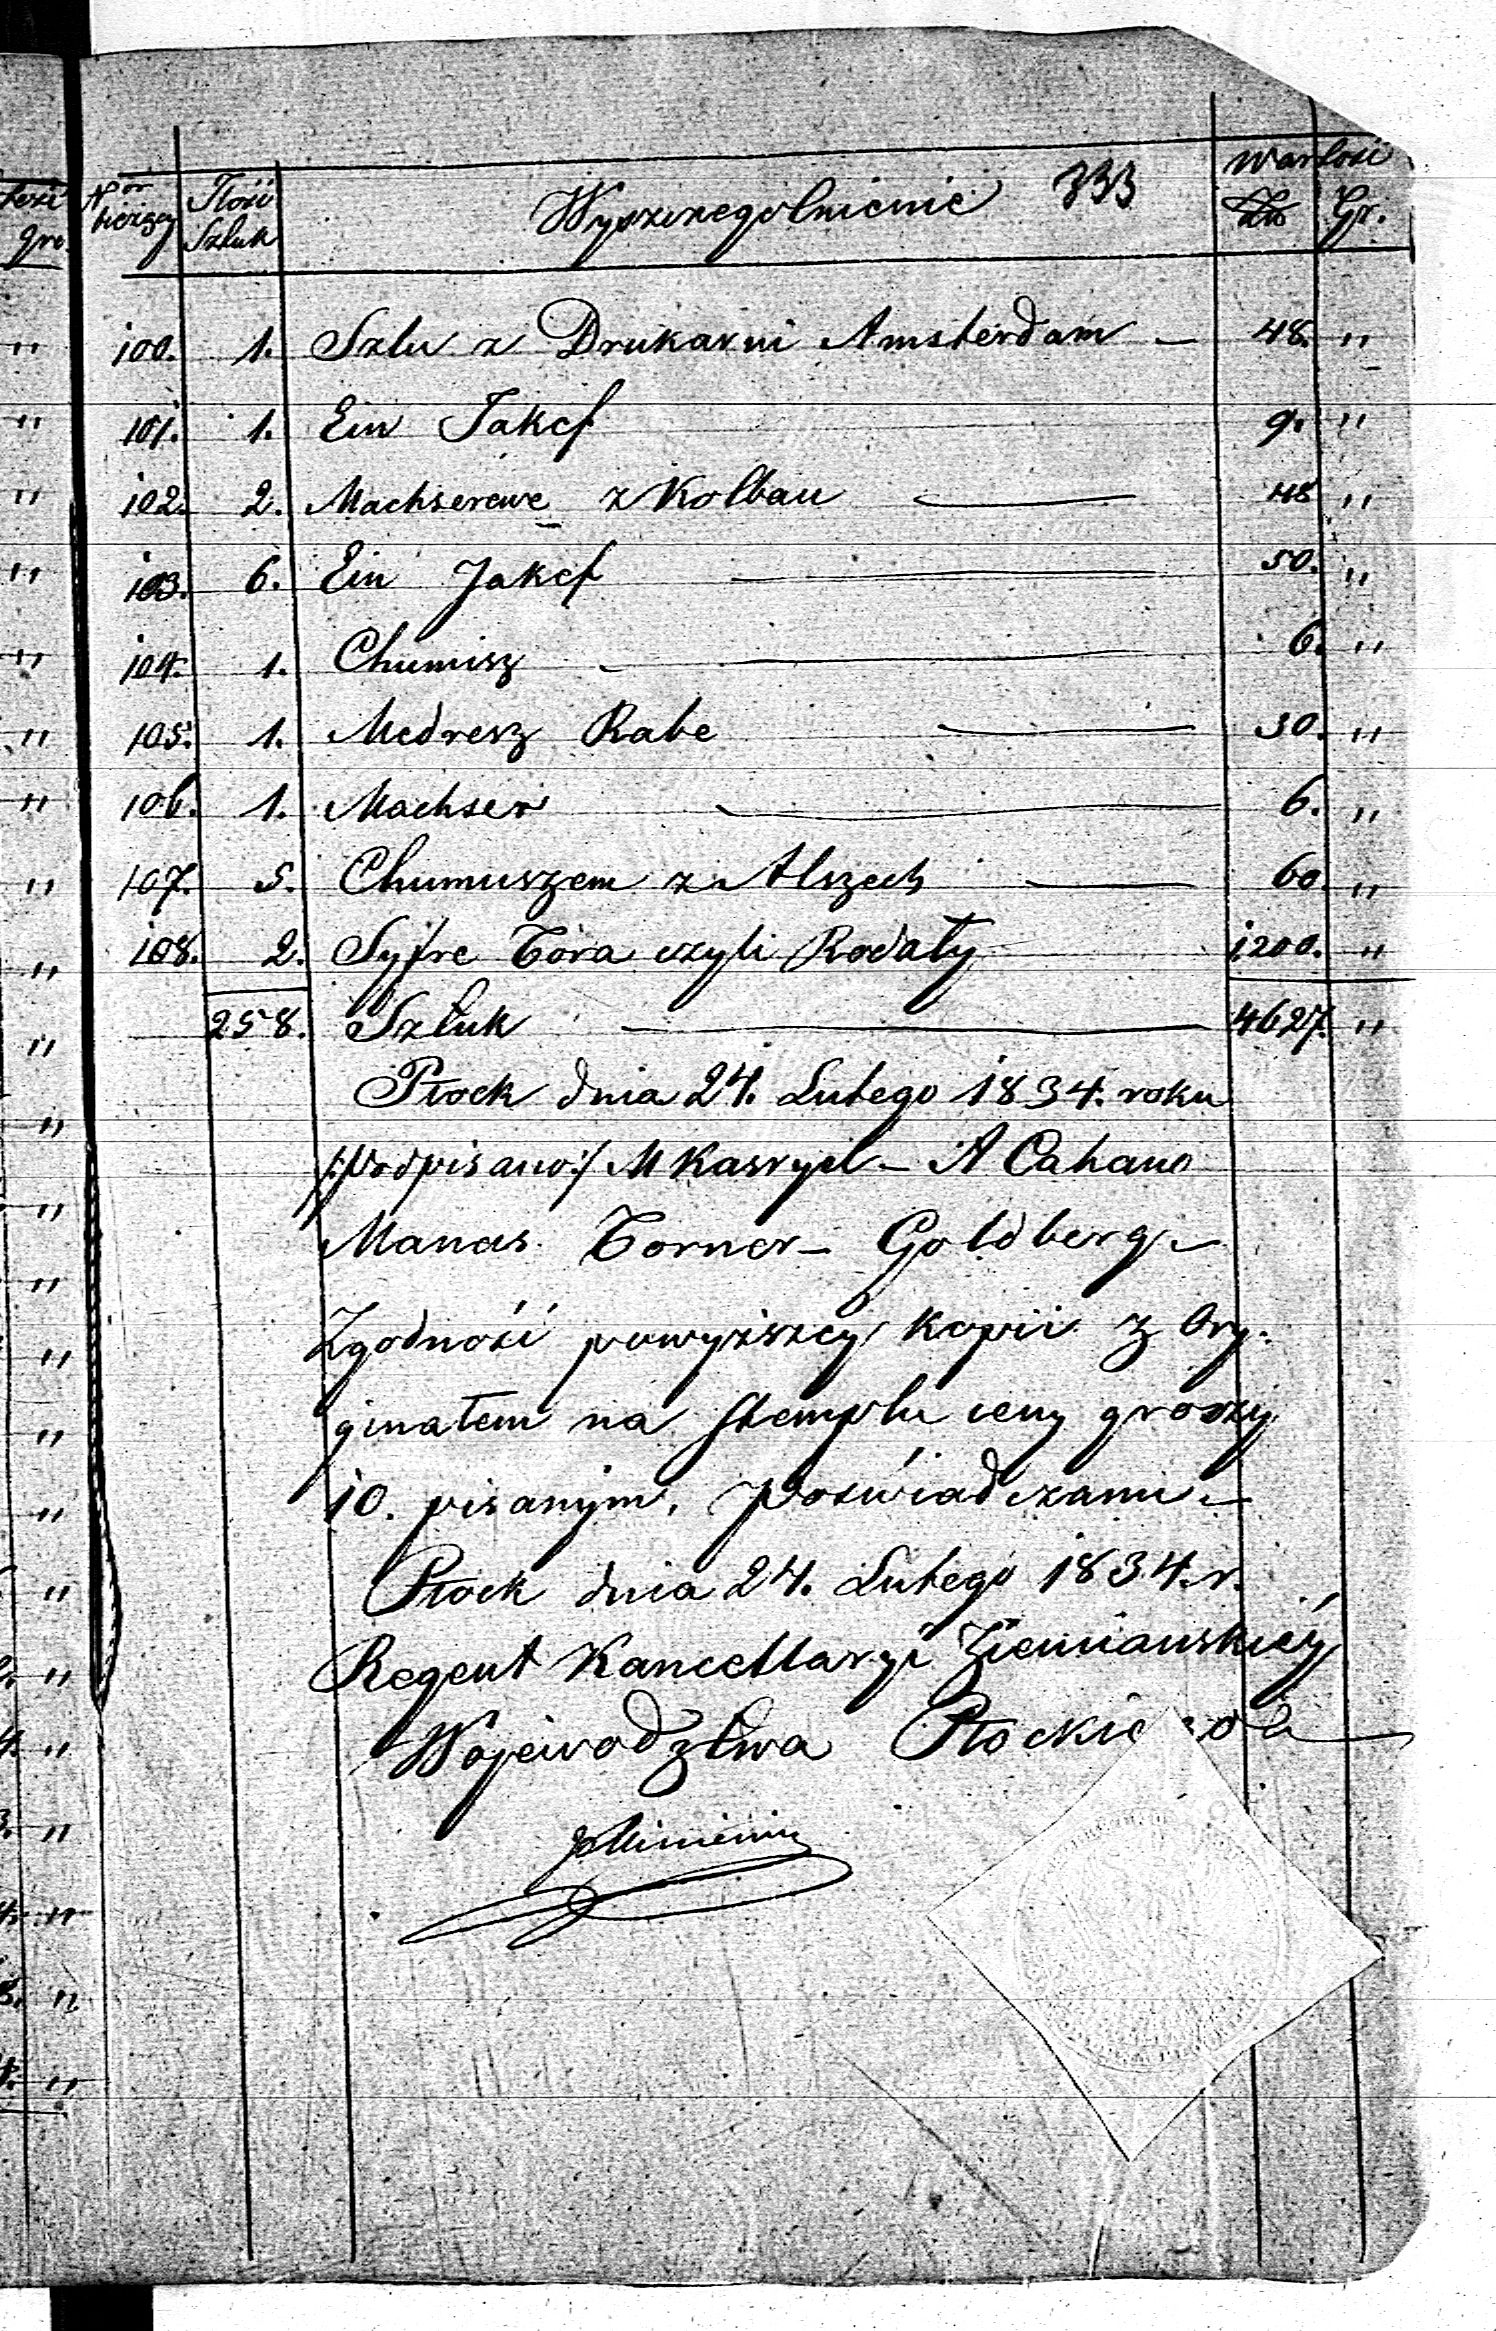 333
Wartość
Nor bieżący Ilość Sztuk Wyszczegolnienie Złt Gr.
100. 1. Szlu z Drukarni Amsterdam – 48. "
101. 1. Ein Jakef 9. "
102. 2. Machserewe z Kolbau — 48 "
103. 6. Ein Jakef — 50. "
104. 1. Chumisz — 6. "
105. 1. Medresz Rabe — 30. "
106. 1. Machser — 6. "
107. 5. Chumuszem z Alszech — 60. "
108. 2. Syfre Tora czyli Rodały 1200. "
258. Sztuk — 4627. "
Płock dnia 24. Lutego 1834. roku
/:podpisano:/ M Kasryel – A Cahane
Manas Torner – Goldberg –
Zgodność powyższey kopii z Ory-
ginałem na stemplu ceny groszy
10. pisanym, poświadczam –
Płock dnia 24. Lutego 1834. r.
Regent Kancellaryi Ziemianskiey
Wojewodztwa Płockiego